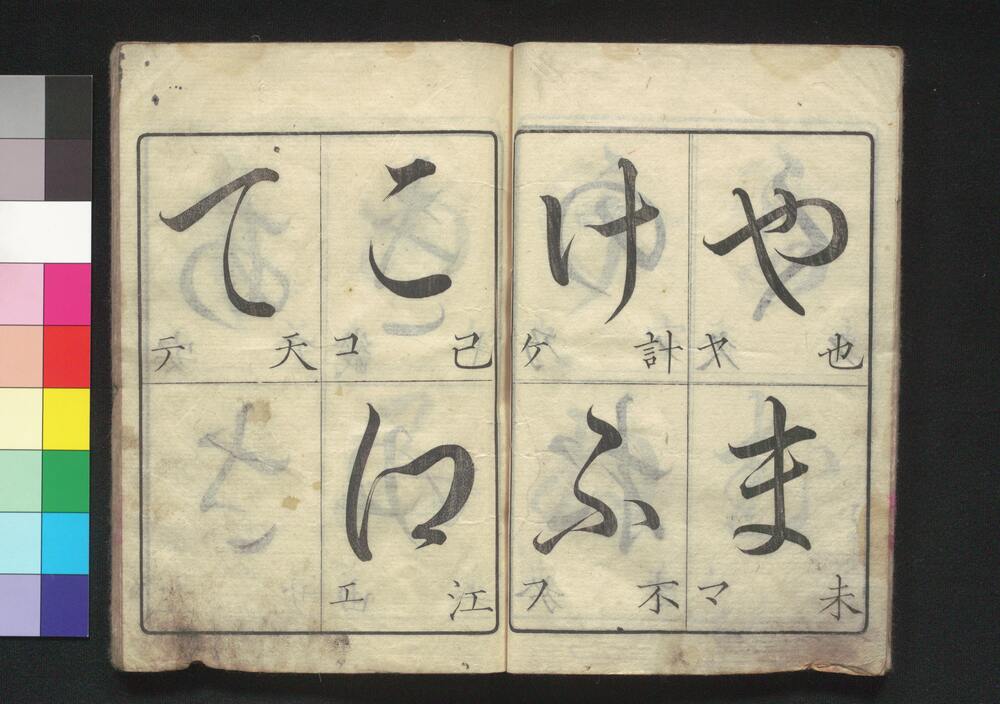 や
也 ヤ
ま
未 マ
け
計 ケ
ふ
不 フ
こ
己 コ
𛀁
江 エ
て
天 テ